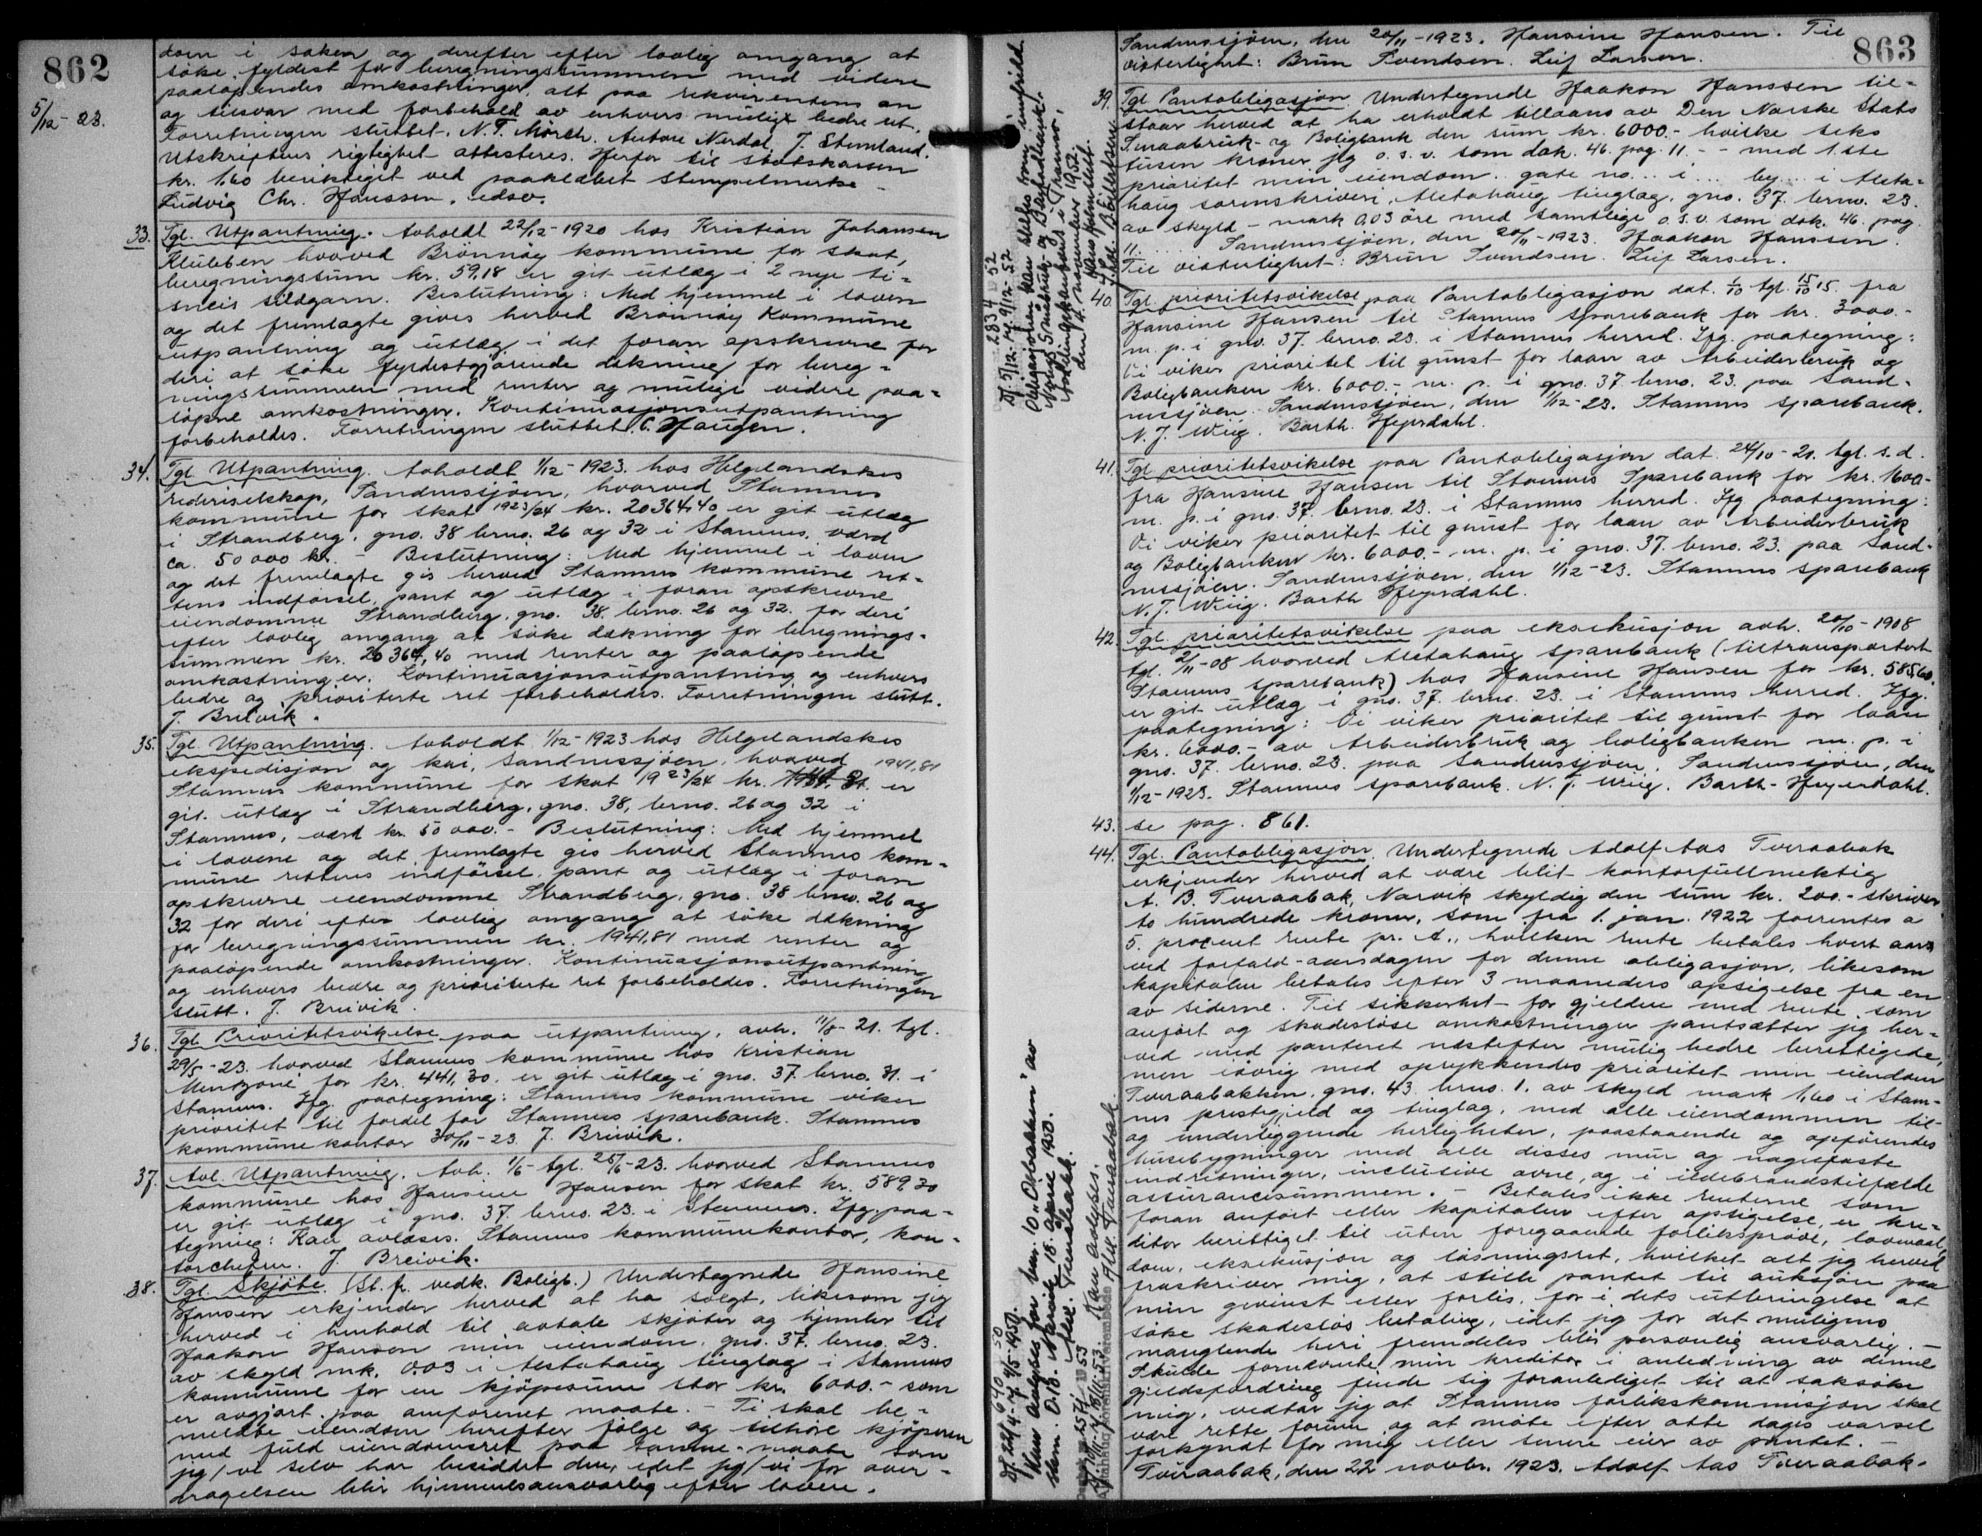 862
5/12-23.
dom i saken og derefter efter lovlig omgang at
søke fyldest for beregningssummen med videre
paaløpendes omkostninger, alt paa rekvirentens an
og tilsvar med forbehold av enhvers mulige bedre ret.
Forretningen sluttet. N. F. Mørch. Antore Nerdal. J. Stemland.
Utskriftens rigtighet attesteres. Herfor til statskassen
kr. 1,60 beriktiget ved paaklæbet stempelmerke
Ludvig Chr. Hanssen, edsv.
33. Tgl. Utpantning. Avholdt 22/12-1920 hos Kristian Johansen
Klubben hvorved Brønnøy kommune for skat,
beregningssum kr. 59,18 er git utlæg i 2 nye ti-
sneis sildgarn. Beslutning: Med hjemmel i loven
og det fremlagte gives herved Brønnøy Kommune
utpantning og utlæg i det foran opskrevne for
deri at søke fyldestgjørende dækning for bereg-
ningssummen med renter og mulige videre paa-
løpne omkostninger. Kontinuasjonsutpantning
forbeholdes. Forretningen sluttet. C. Haugen.
34. Tgl. Utpantning. Avholdt 1/12-1923 hos Helgelandskes
rederiselskap, Sandnessjøen, hvorved Stamnes
kommune for skat 1923/24 kr. 20364,40 er git utlæg
i Strandberg, gno. 38 brno. 26 og 32 i Stamnes, værd
ca. 50 000 kr. – Beslutning: Med hjemmel i loven
og det fremlagte gis herved Stamnes kommune ret-
tens indførsel, pant og utlæg i foran opskrevne
eiendomme Strandberg, gno. 38. brno. 26 og 32. for deri
efter lovlig omgang at søke dækning for beregnings-
summen kr. 20364,40 med renter og paaløpende
omkostninger. Kontinuasjonsutpantning og enhvers
bedre og prioriterte ret forbeholdes. Forretningen slutt.
J. Breivik.
35. Tgl. Utpantning. Avholdt 1/12-1923 hos Helgelandskes
ekspedisjon og kai, Sandnessjøen, hvorved 1941,81
Stamnes kommune for skat 1923/24 kr. er
git utlæg i Strandberg, gno. 38, brno. 26 og 32 i
Stamnes, værd kr. 50 000.- Beslutning: Med hjemmel
i lovene og det fremlagte gis herved Stamnes kom-
mune rettens indførsel, pant og utlæg i foran
opskrevne eiendomme Strandberg, gno. 38 brno. 26 og
32 for deri efter lovlig omgang at søke dækning
for beregningssummen kr. 1941,81 med renter og
paaløpende omkostninger. Kontinuasjonsutpantning
og enhvers bedre og prioriterte ret forbeholdes. Forretningen
slutt. J. Breivik.
36. Tgl. Prioritetsvikelse paa utpantning, avh. 11/8-21. tgl.
29/5-23. hvorved Stamnes kommune hos Kristian
Mentzone for kr. 441,30. er git utlæg i gno. 37. brno. 31. i
Stamnes. Ifg. paategning: Stamnes kommune viker
prioritet til fordel for Stamnes sparebank. Stamnes
kommunekontor 30/11-23. J. Breivik.
37. Avl. Utpantning. Avh. 1/6- tgl. 25/6-23. hvorved Stamnes
kommune hos Hansine Hansen for skat kr. 589,30
er git utlæg i gno. 37. brno. 23. i Stamnes. Ifg. paa-
tegning: Kan avlæses. Stamnes kommunekontor, kon-
torchefen. J. Breivik.
38. Tgl. Skjøte. (St. fr. vedk. Boligb.) Undertegnede Hansine
Hansen erkjender herved at ha solgt, likesom jeg
herved i henhold til avtale skjøter og hjemler til
Haakon Hansen min eiendom, gno. 37. brno. 23.
av skyld mk. 0.03 i Alstahaug tinglag i Stamnes
kommune for en kjøpesum stor kr. 6000.- som
er avgjort paa omforenet maate. – Ti skal be-
meldte eiendom herefter følge og tilhøre kjøperen
med fuld eiendomsret paa samme maate som
jeg/vi selv har besiddet den, idet jeg/vi for over-
dragelsen blir hjemmelsansvarlig efter loven.
2834 52
Df. 5/12. 14 9/12-52
Obligasjonen kan slettes som innfridd.
Norges Småbruk og Bustadbank.
fordelingskontoret i Tromsø,
den 4. november 1952
Hans Johnsrbet.
Fred. B. Eilertsen
640 50
Df. 22/4.-14 4/5-1950.
Kan avlyses for bnr. 10 "Olbakken" av
skm. 0.18. Narvik 18. april 1950.
Alvl. Tverabakk.
2571 53
Kan avlyses.
Alvl. Tveraabak.
863
Sandnessjøen, den 20/11-1923. Hansine Hansen. Til
vitterlighet: Brun Svendsen. Leif Larsen.
39. Tgl. Pantobligasjon. Undertegnede Haakon Hanssen til-
staar herved at ha erholdt tillaans av Den Norske Stats
Smaabruk- og Boligbank den sum kr. 6000.- hvilke seks
tusen kroner jeg o. s. v. som dok. 46. pag. 11. - - med 1.ste
prioritet min eiendom. gate no... i... by... i Alsta-
haug sorenskriveri, Alstahaug tinglag, gno. 37. brno. 23.
av skyld - mark 0,03 øre med samtlige o.s.v. som dok. 46. pag.
11. Sandnessjøen, den 20/11-1923. Haakon Hanssen.
Til vitterlighet: Brun Svendsen. Leif Larsen.
40. Tgl. prioritetsvikelse paa Pantobligasjon dat. 1/10 tgl. 15/10 15. fra
Hansine Hansen til Stamnes sparebank for kr. 3000.-
m. p. i gno. 37. brno. 23. i Stamnes herred. Ifg. paategning:
Vi viker prioritet til gunst for laan av Arbeiderbruk og
Boligbanken kr. 6000.- m. p. i gno. 37 brno. 23. paa Sand-
nessjøen. Sandnessjøen, den 1/12-23. Stamnes sparebank.
N. J. Wiig. Barth. Heyerdahl.
41. Tgl. prioritetsvikelse paa Pantobligasjon dat. 24/10-21. tgl. s.d.
fra Hansine Hansen til Stamnes Sparebank for kr. 1600.-
m. p. i gno. 37. brno. 23. i Stamnes herred. Ifg. paategning:
Vi viker prioritet til gunst for laan av Arbeiderbruk
og Boligbanken kr. 6000.- m. p. i gno. 37. brno. 23. paa Sand-
nessjøen. Sandnessjøen, den 1/12-23. Stamnes sparebank
N. J. Wiig. Barth Heyerdahl.
42. Tgl. prioritetsvikelse paa eksekusjon avh. 20/10-1908
tgl. 2/11-08 hvorved Alstahaug sparebank (tiltransportert
Stamnes sparebank) hos Hansine Hansen for kr. 585,60.
er git utlæg i gno. 37. brno. 23. i Stamnes herred. Ifg.
paategning: Vi viker prioritet til gunst for laan
kr. 6000.- av Arbeiderbruk og boligbanken m. p. i
gno. 37. brno. 23. paa Sandnessjøen. Sandnessjøen, den
1/12-1923. Stamnes sparebank. N. J. Wiig. Barth-Heyerdahl.
43. se pag. 861.
44. Tgl. Pantobligasjon. Undertegnede Adolf Aas Tveraabak
erkjender herved at være blit kontorfuldmektig
A. B. Tveraabak, Narvik skyldig den sum kr. 200.- skriver
to hundrede kroner, som fra 1. jan. 1922 forrentes a
5. procent rente pr. A., hvilken rente betales hvert aar
ved forfald-aarsdagen for denne obligasjon, likesom
kapitalen betales efter 3 maaneders opsigelse fra en
av siderne. Til sikkerhet for gjelden med rente som
anført og skadesløse omkostninger pantsætter jeg her-
ved med panteret næstefter mulig bedre berettigede,
men iøvrig med oprykkendes prioritet min eiendom
Tveraabakken, gno. 43. brno. 1. av skyld mark 1,60 i Stam-
nes prestegjeld og tinglag, med alle eiendommen til-
og underliggende herligheter, paastaaende og opførendes
husebygninger med alle disses mur og nagelfaste
indretninger, inclusive ovne, og i ildebrandstilfælde
assurancesummen. – Betales ikke renterne som
foran anført eller kapitalen efter opsigelse, er kre-
ditor berettiget til uten foregaaende forliksprøve, lovmaal,
dom, eksekusjon og løsningsret, hvilket alt jeg herved
fraskriver mig, at stille pantet til auksjon paa
min gevinst eller forlis, for i dets utbringelse at
søke skadesløs betaling, idet jeg for det muligens
manglende heri fremdeles blir personlig ansvarlig. –
Skulde fornævnte min kreditor i anledning av denne
gjeldsfordring finde sig foranlediget til at saksøke
mig, vedtar jeg at Stamnes forlikskommisjon skal
være rette forum og at møte efter otte dages varsel
forkyndt for mig eller senere eier av pantet. –
Tveraabak, den 22 novbr. 1923. Adolf Aas Tveraabak.-